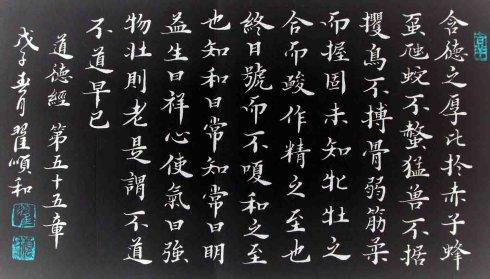 含德之厚比於赤子蜂
虿虺蛇不螫猛兽不据
攫鳥不搏骨弱筋柔
而握固未知牝牡之
合而酸作精之至也
終日號而不嗄和之至
也知和曰常知常曰明
益生曰祥心使氣曰強
物壯則老是謂不道
不道早已
道德經 第五十五章
戊子春月 翟順和